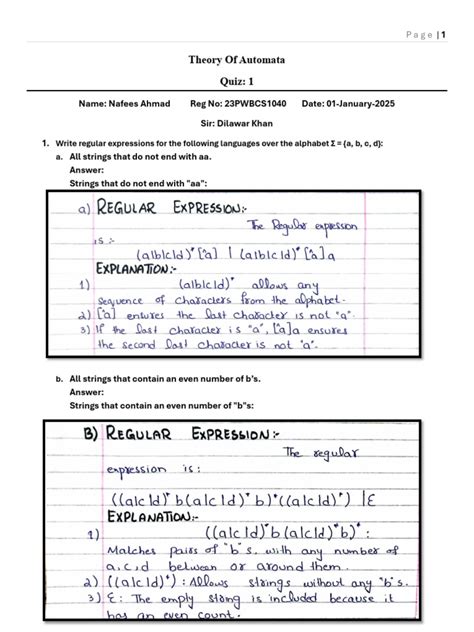 Page | 1
Theory Of Automata
Quiz: 1
Name: Nafees Ahmad Reg No: 23PWBCS1040 Date: 01-January-2025
Sir: Dilawar Khan
1. Write regular expressions for the following languages over the alphabet Σ = {a, b, c, d}:
a. All strings that do not end with aa.
Answer:
Strings that do not end with "aa":
a) REGULAR EXPRESSION:-
The Regular expression
is :-
(a|b|c|d)* [^a] | (a|b|c|d)* [^a] a
EXPLANATION:-
1) (a|b|c|d)* allows any
sequence of characters from the alphabet.
2) [^a] ensures the last character is not "a".
3) If the last character is "a", [^a]a ensures
the second last character is not "a".
b. All strings that contain an even number of b's.
Answer:
Strings that contain an even number of "b"s:
B) REGULAR EXPRESSION:-
The regular
expression is :
((a|c|d)* b(a|c|d)* b)* ((a|c|d)*) | ε
EXPLANATION:-
1) ((a|c|d)* b (a|c|d)* b)* :
Matches pairs of "b"s, with any number of
a, c, d between or around them.
2) ((a|c|d)*) : Allows strings without any "b"s.
3) ε: The empty string is included because it
has an even count.